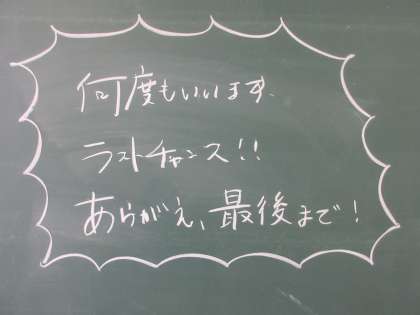 何度もいいます、
ラストチャンス!!
あらがえ、最後まで!